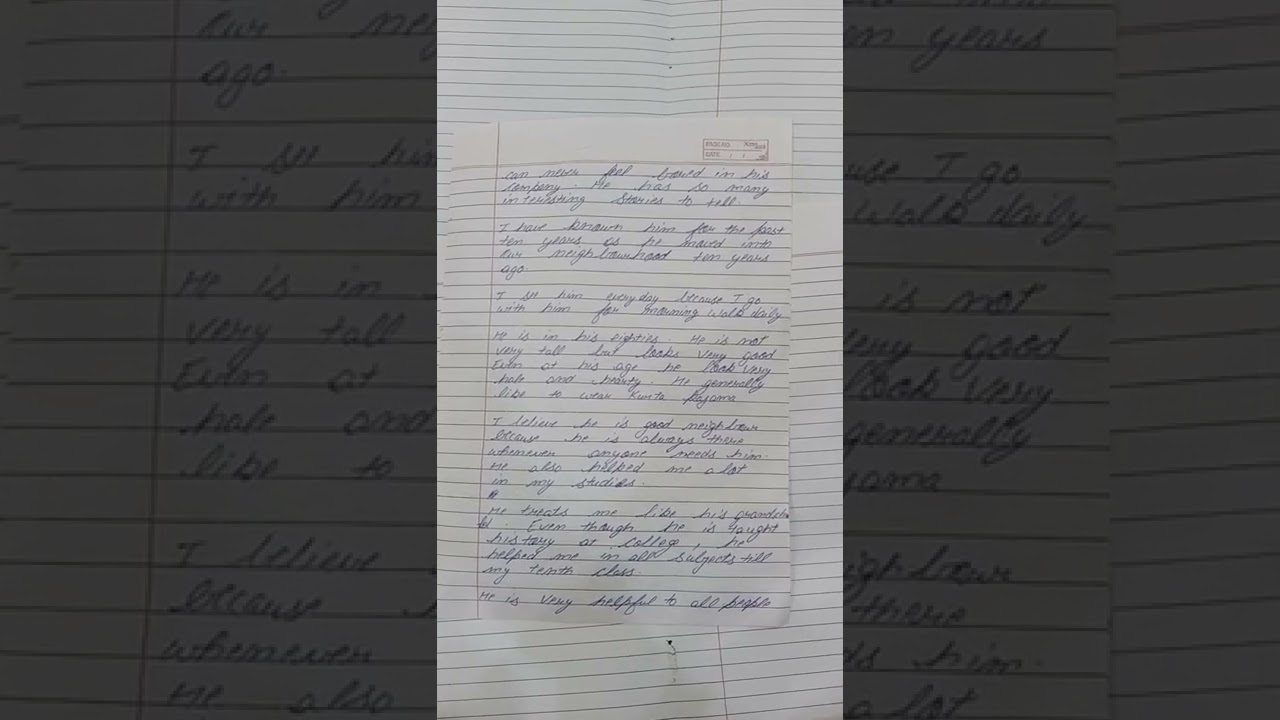 PAGE NO.
DATE / /
can never feel bored in his
company. He has so many
interesting stories to tell.
I have known him for the past
ten years as he moved into
our neighbourhood ten years
ago.
I see him everyday because I go
with him for morning walk daily
He is in his eighties. He is not
very tall but looks very good
Even at his age he look very
hale and hearty. He generally
like to wear Kurta Pajama
I believe he is good neighbour
because he is always there
whenever anyone needs him.
He also helped me a lot
in my studies.
He treats me like his grandchi
ld. Even though he is taught
history at college, he
helped me in all subjects till
my tenth class.
He is very helpful to all people